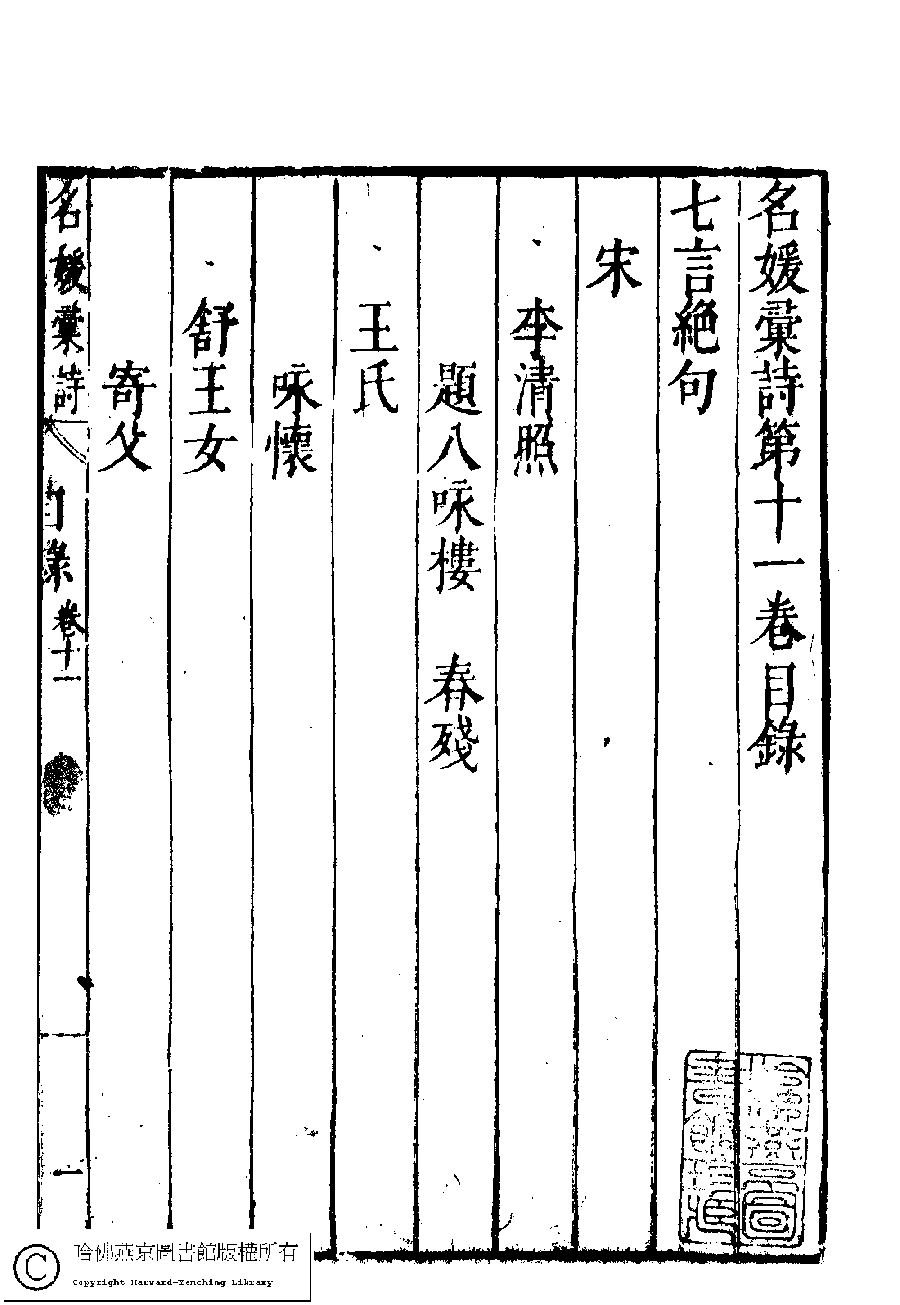 名媛彙詩第十一卷目錄
七言絕句
宋
李清照
題八咏樓　春殘
王氏
咏懷
舒王女
寄父
名媛彙詩　目錄　卷十一　一
哈佛燕京圖書館版權所有
Copyright Harvard-Yenching Library